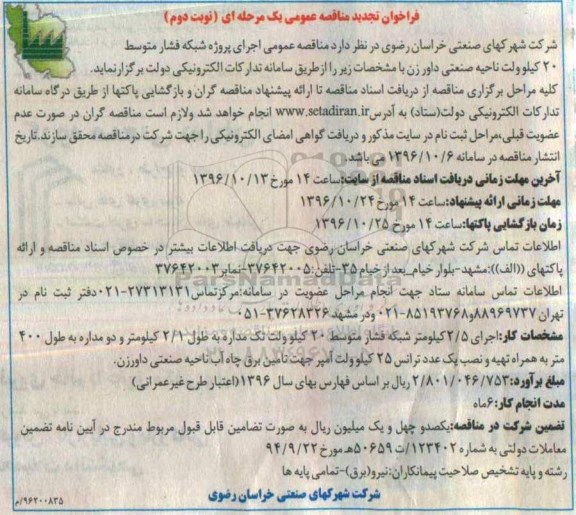 فراخوان تجدید مناقصه عمومی یک مرحله ای (نوبت دوم)
شرکت شهرکهای صنعتی خراسان رضوی در نظر دارد مناقصه عمومی اجرای پروژه شبکه فشار متوسط
۲۰ کیلو ولت ناحیه صنعتی داور زن با مشخصات زیر را از طریق سامانه تدارکات الکترونیکی دولت برگزار نماید.
کلیه مراحل برگزاری مناقصه از دریافت اسناد مناقصه تا ارائه پیشنهاد مناقصه گران و بازگشایی پاکتها از طریق درگاه سامانه
تدارکات الکترونیکی دولت(ستاد) به آدرس www.setadiran.ir انجام خواهد شد ولازم است مناقصه گران در صورت عدم
عضویت قبلی،مراحل ثبت نام در سایت مذکور و دریافت گواهی امضای الکترونیکی را جهت شرکت در مناقصه محقق سازند.تاریخ
انتشار مناقصه در سامانه ۱۳۹۶/۱۰/۶ می باشد.
آخرین مهلت زمانی دریافت اسناد مناقصه از سایت:ساعت ۱۴ مورخ ۱۳۹۶/۱۰/۱۳
مهلت زمانی ارائه پیشنهاد:ساعت ۱۴ مورخ ۱۳۹۶/۱۰/۲۴
زمان بازگشایی پاکتها:ساعت ۱۴ مورخ ۱۳۹۶/۱۰/۲۵
اطلاعات تماس شرکت شهرکهای صنعتی خراسان رضوی جهت دریافت اطلاعات بیشتر در خصوص اسناد مناقصه و ارائه
پاکتهای ((الف)):مشهد-بلوار خیام_بعد از خیام ۳۵-تلفن:۳۷۶۴۲۰۰۵-نمابر۳۷۶۴۲۰۰۳
اطلاعات تماس سامانه ستاد جهت انجام مراحل عضویت در سامانه:مرکزتماس۲۷۳۱۳۱۳۱-۰۲۱دفتر ثبت نام در
تهران ۸۸۹۶۹۷۳۷و۸۵۱۹۳۷۶۸-۰۲۱ ودر مشهد:۳۷۶۲۸۳۲۶-۰۵۱
مشخصات کار:اجرای ۲/۵کیلومتر شبکه فشار متوسط ۲۰ کیلو ولت تک مداره به طول ۲/۱ کیلومتر و دو مداره به طول ۴۰۰
متر به همراه تهیه و نصب یک عدد ترانس ۲۵ کیلو ولت آمپر جهت تامین برق چاه آب ناحیه صنعتی داورزن.
مبلغ برآورد:۲/۸۰۱/۰۴۶/۷۵۳ ریال بر اساس فهارس بهای سال ۱۳۹۶(اعتبار طرح غیرعمرانی)
مدت انجام کار:۶ماه
تضمین شرکت در مناقصه:یکصدو چهل و یک میلیون ریال به صورت تضامین قابل قبول مربوط مندرج در آیین نامه تضمین
معاملات دولتی به شماره ۱۲۳۴۰۲/ت ۵۰۶۵۹هـ مورخ ۹۴/۹/۲۲
رشته و پایه تشخیص صلاحیت پیمانکاران:نیرو(برق)-تمامی پایه ها
شرکت شهرکهای صنعتی خراسان رضوی
۹۶۲۰۰۸۳۵/م